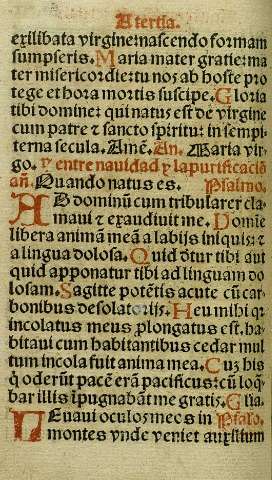 A tertia.
exilibata virgine: nascendo formam
sumpseris. Maria mater gratie: ma
ter misericordie: tu nos ab hoste pro
tege et hora mortis suscipe. Gloria
tibi domine: qui natus est de virgine
cum patre ⁊ sancto spiritu: in sempi
terna secula. Amē. An. Maria vir-
go. y entre nauidad y la purificaciō
añ. Quando natus es. Psalmo.
AD dominū cum tribularer cla-
maui ⁊ exaudiuit me. Domīe
libera animā meā a labijs iniquis: ⁊
a lingua dolosa. Quid dētur tibi aut
quid apponatur tibi ad linguam do
losam. Sagitte potētis acute cū car-
bonibus desolatorijs. Heu mihi qꝛ
incolatus meus ꝓlongatus est. ha-
bitaui cum habitantibus cedar mul
tum incola fuit anima mea. Cuz his
q̄ oderūt pacē erā pacificus: cū loq̄-
bar illis īpugnabāt me gratis. Gl̄ia.
LEuaui oculos meos in Psalo.
montes vnde veniet auxilium